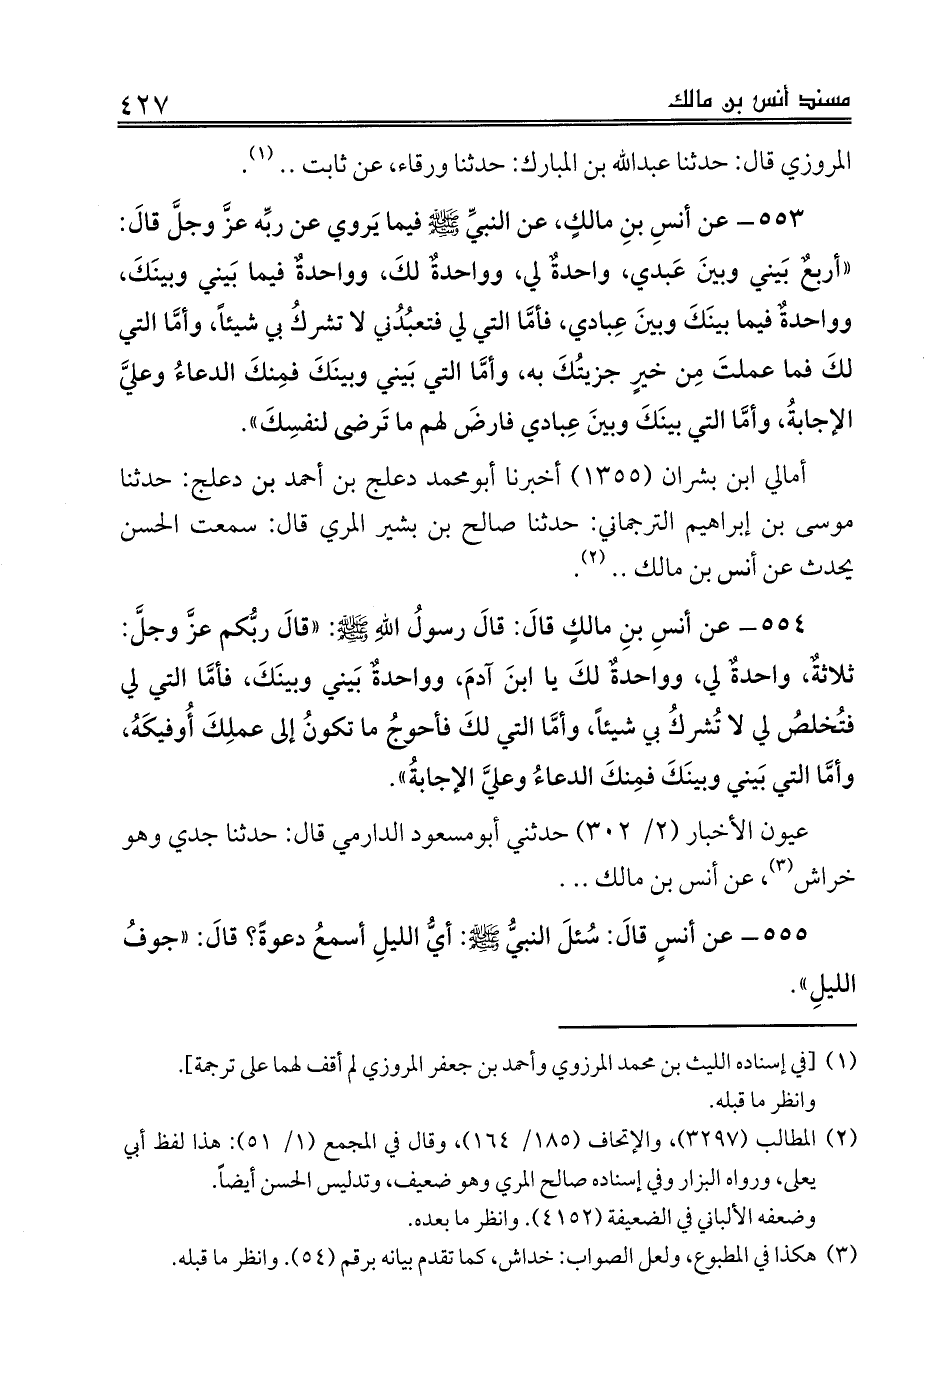 مسند أنس بن مالك
٤٢٧
المروزي قال: حدثنا عبدالله بن المبارك: حدثنا ورقاء، عن ثابت .. (١).
٥٥٣ - عن أنسِ بنِ مالكٍ، عن النبيِّ ﷺ فيما يَروي عن ربِّه عزَّ وجلَّ قالَ:
«أربعٌ بَيني وبينَ عَبدي، واحدةٌ لي، وواحدةٌ لكَ، وواحدةٌ فيما بَيني وبينَكَ،
وواحدةٌ فيما بينَكَ وبينَ عِبادي، فأمَّا التي لي فتعبُدُني لا تشركُ بي شيئاً، وأمَّا التي
لكَ فما عملتَ مِن خيرٍ جزيتُكَ به، وأمَّا التي بَيني وبينَكَ فمِنكَ الدعاءُ وعليَّ
الإجابةُ، وأمَّا التي بينَكَ وبينَ عِبادي فارضَ لهم ما تَرضى لنفسِكَ».
أمالي ابن بشران (١٣٥٥) أخبرنا أبومحمد دعلج بن أحمد بن دعلج: حدثنا
موسى بن إبراهيم الترجماني: حدثنا صالح بن بشير المري قال: سمعت الحسن
يحدث عن أنس بن مالك .. (٢).
٥٥٤ - عن أنسِ بنِ مالكٍ قالَ: قالَ رسولُ اللهِ ﷺ: «قالَ ربُّكم عزَّ وجلَّ:
ثلاثةٌ، واحدةٌ لي، وواحدةٌ لكَ يا ابنَ آدمَ، وواحدةٌ بَيني وبينَكَ، فأمَّا التي لي
فتُخلصُ لي لا تُشركُ بي شيئاً، وأمَّا التي لكَ فأحوجُ ما تكونُ إلى عملِكَ أُوفيكَهُ،
وأمَّا التي بَيني وبينَكَ فمِنكَ الدعاءُ وعليَّ الإجابةُ».
عيون الأخبار (٢/ ٣٠٢) حدثني أبومسعود الدارمي قال: حدثنا جدي وهو
خراش(٣)، عن أنس بن مالك ...
٥٥٥ - عن أنسٍ قالَ: سُئلَ النبيُّ ﷺ: أيُّ الليلِ أسمعُ دعوةً؟ قالَ: «جوفُ
الليلِ».
(١) [في إسناده الليث بن محمد المرزوي وأحمد بن جعفر المروزي لم أقف لهما على ترجمة].
وانظر ما قبله.
(٢) المطالب (٣٢٩٧)، والإتحاف (١٨٥/ ١٦٤)، وقال في المجمع (١/ ٥١): هذا لفظ أبي
يعلى، ورواه البزار وفي إسناده صالح المري وهو ضعيف، وتدليس الحسن أيضاً.
وضعفه الألباني في الضعيفة (٤١٥٢). وانظر ما بعده.
(٣) هكذا في المطبوع، ولعل الصواب: خداش، كما تقدم بيانه برقم (٥٤). وانظر ما قبله.